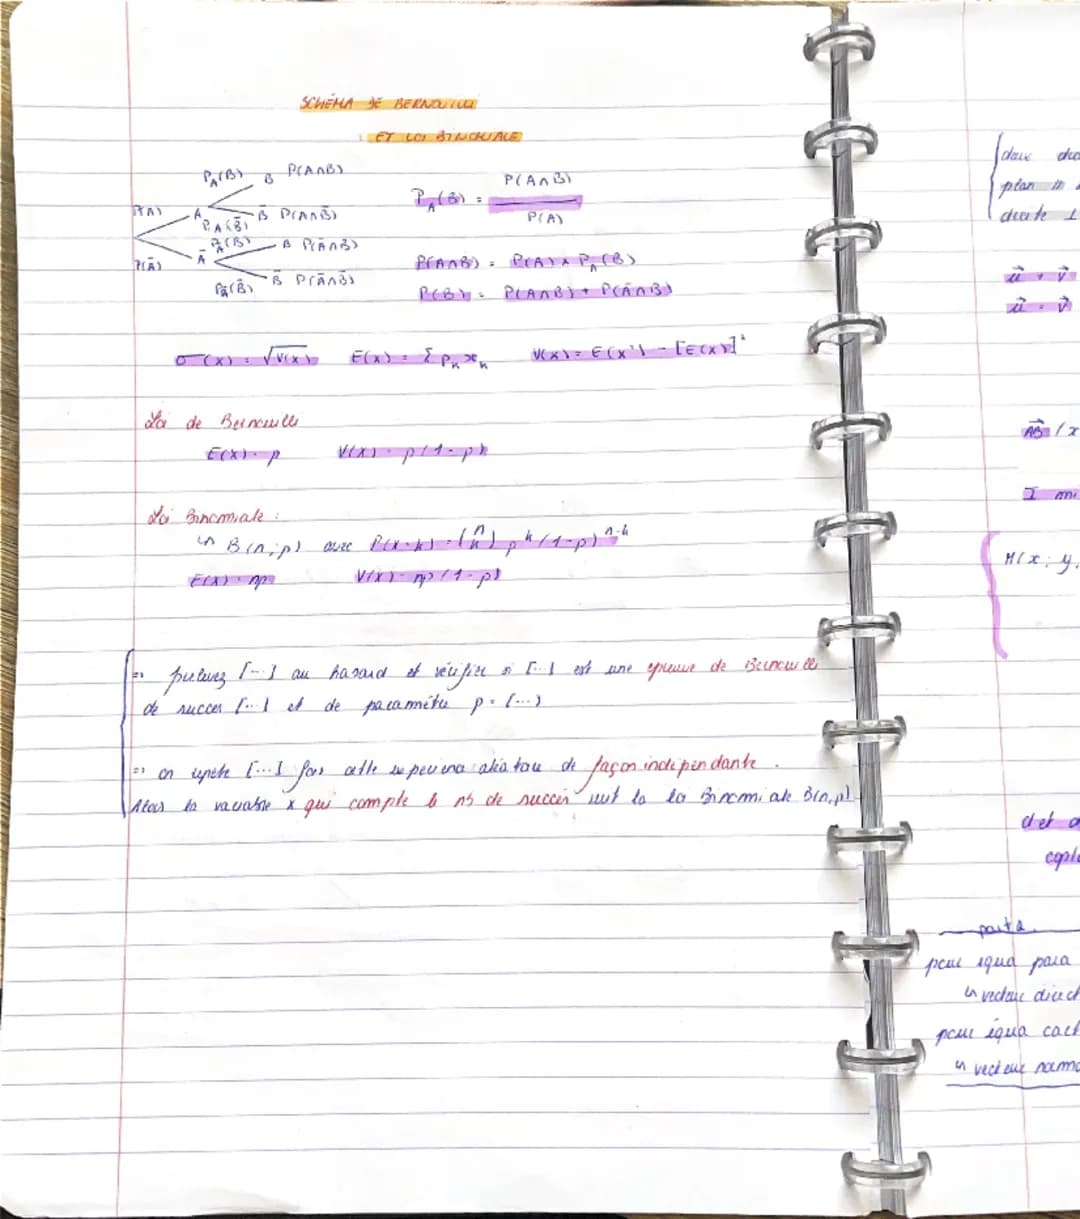 SCHÉMA DE BERNOULLI
ET LOI BINOMIALE
P(A) A P_A(B) B P(A∩B)
P_A(B̄) B̄ P(A∩B̄)
P(Ā) Ā P_Ā(B) B P(Ā∩B)
P_Ā(B̄) B̄ P(Ā∩B̄)
P_A(B) = P(A∩B) / P(A)
P(A∩B) = P(A) × P_A(B)
P(B) = P(A∩B) + P(Ā∩B)
σ(x) = √V(x) E(x) = Σ p_k x_k V(x) = E(x²) - [E(x)]²
Loi de Bernoulli
E(x) = p V(x) = p(1-p)
Loi Binomiale :
↳ B(n;p) avec P(x=k) = (n k) p^k (1-p)^n-k
E(x) = np V(x) = np(1-p)
=> [...] au hasard et vérifier si [...] est une épreuve de Bernoulli
de succès [...] et de paramètre p = (...)
=> on répète [...] fois cette expérience aléatoire de façon indépendante.
Alors la variable x qui compte le nb de succès suit la loi Binomiale B(n,p)
deux dro
plan
droite ⊥
u⃗ + v⃗
u⃗ . v⃗
AB⃗ (x
I mi
M(x; y
det
copl
pour équa para
↳ vecteur direct
pour équa cart
↳ vecteur norma